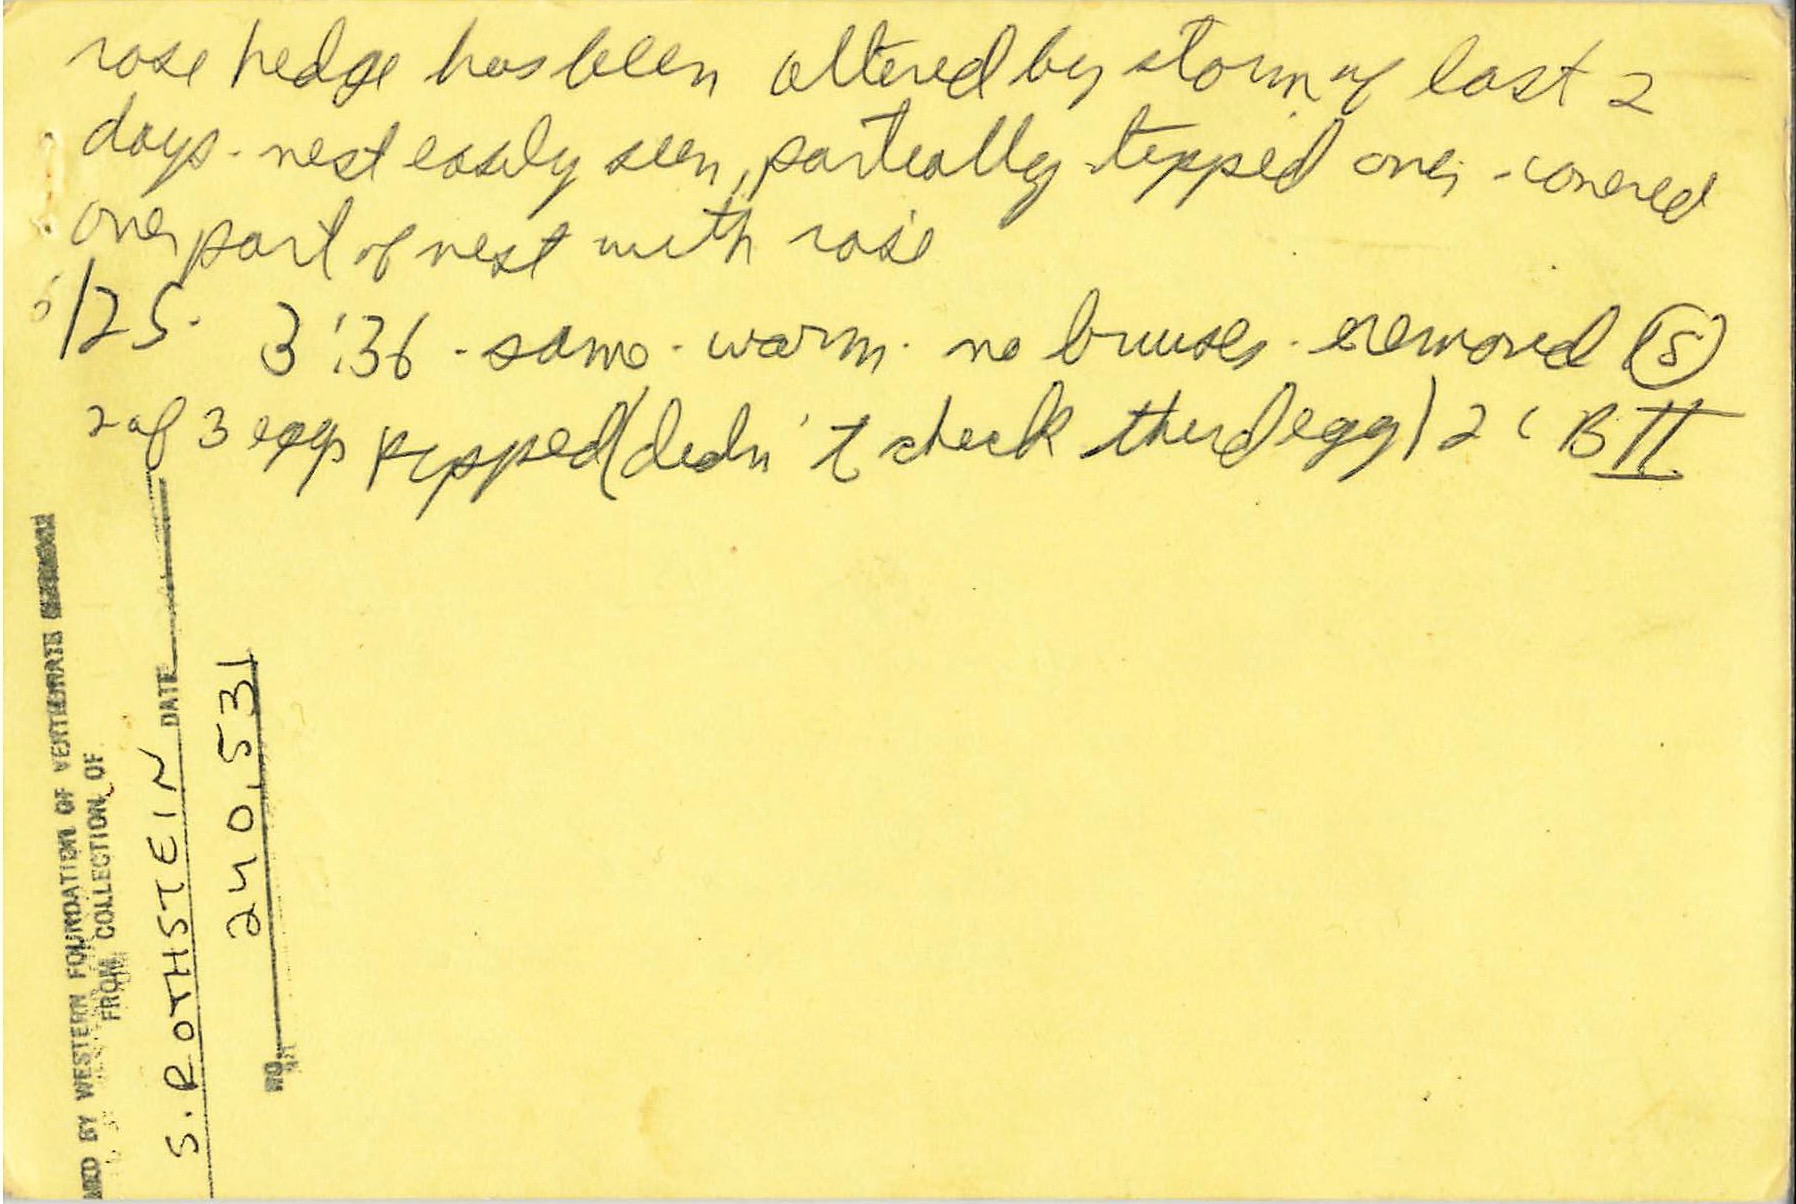 rose hedge has been altered by storm of last 2
days - nest easily seen, partially tipped over - covered
over part of nest with rose
/25. 3:36 - same - warm - no bruises - removed (5)
2 of 3 eggs pipped (didn't check third egg) 2 C B II
BY WESTERN FOUNDATION OF VERTEBRATE
FROM COLLECTION OF
S. ROTHSTEIN DATE
NO. 240,531